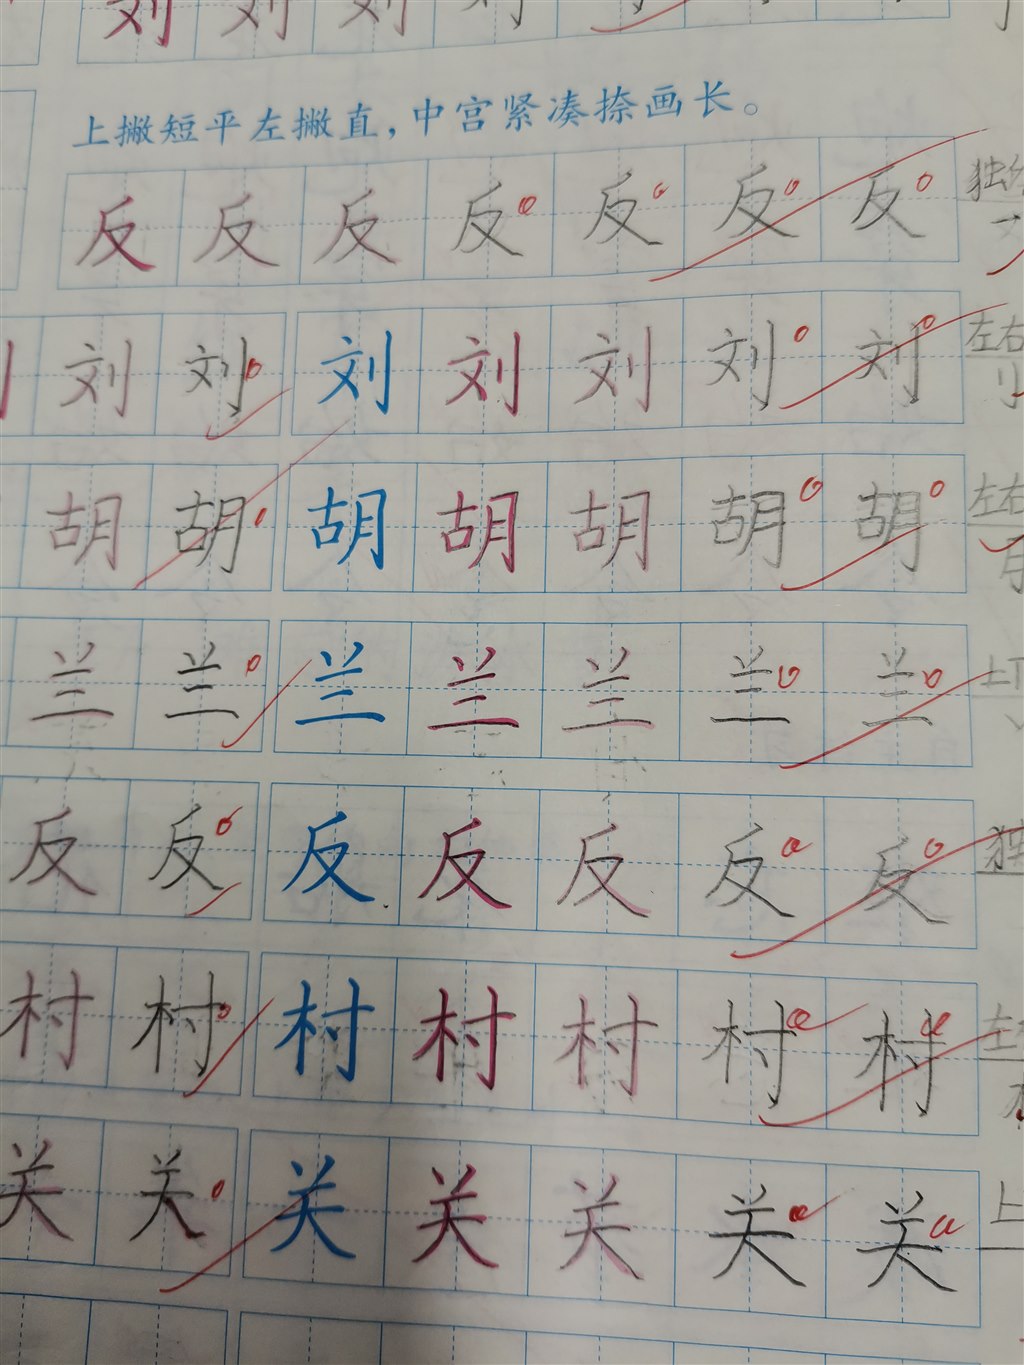 刘 刘 刘 刘 刘 刘
上撇短平左撇直，中宫紧凑捺画长。
反 反 反 反 反 反 反 独
刘 刘 刘 刘 刘 刘 刘 左右
刂
胡 胡 胡 胡 胡 胡 胡 左右
月
兰 兰 兰 兰 兰 兰 兰 上下
反 反 反 反 反 反 反 独
村 村 村 村 村 村 村 左
关 关 关 关 关 关 关 上